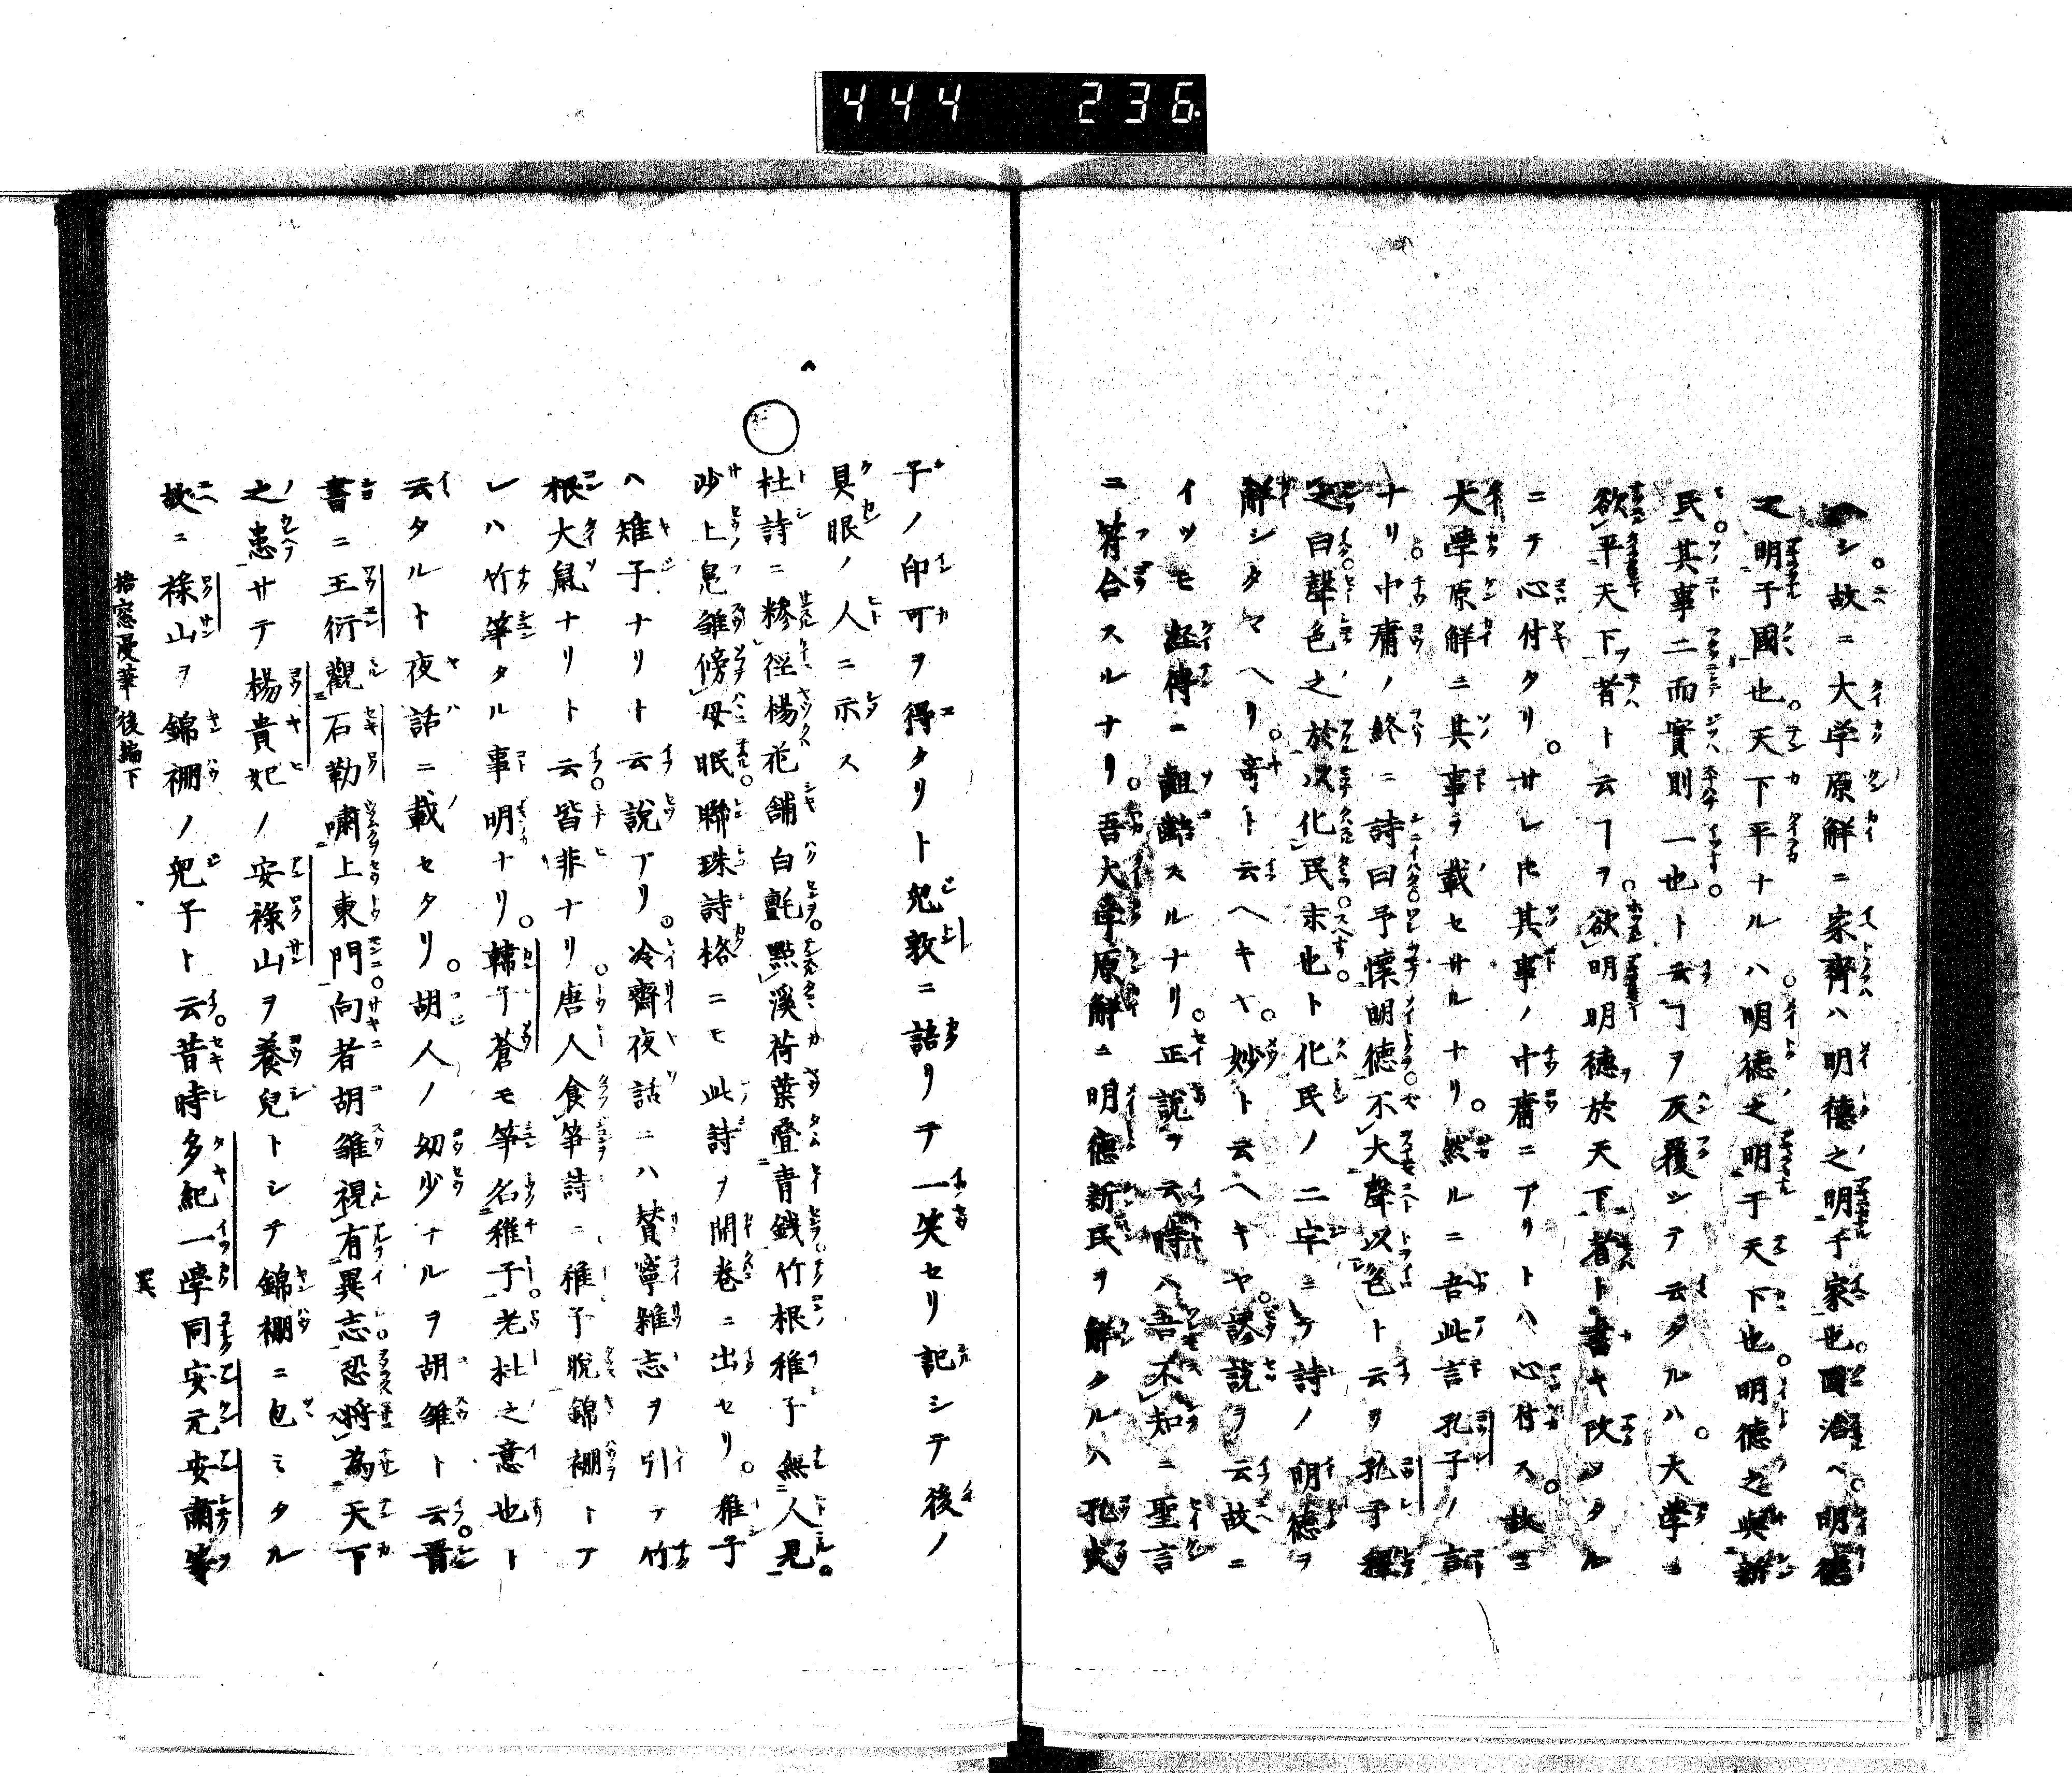 444 236
ヘシ故ニ大学原解ニ家齊ハ明德之明于家也國治ハ明德
之明于國也天下平ナルハ明德之明于天下也明德之與新
民其事二而實則一也ト云ヿヲ反覆シテ云タルハ大学ニ
欲平天下者ト云ヿヲ欲明明德於天下者ト書キ改メタル
ニテ心付タリサレ𪜈其事ノ中庸ニアリトハ心付ス故ニ
大學原解ニ其事ヲ載セサルナリ然ルニ吾此言孔子ノ言
ナリ中庸ノ終ニ詩曰予懷明德不大聲以色ト云ヲ孔子釋
之曰聲色之於以化民末也ト化民ノ二字ニテ詩ノ明德ヲ
解シタマヘリ奇ト云ヘキヤ妙ト云ヘキヤ謬說ヲ云故ニ
イツモ経傳ニ齟齬スルナリ正說ヲ云時ハ吾不知ニ聖言
ニ符合スルナリ吾大学原解ニ明德新民ヲ解クルハ孔夫
子ノ印可ヲ得タリト兒敦ニ語リテ一笑セリ記シテ後ノ
具眼ノ人ニ示ス
杜詩ニ糝徑楊花舖白氈點溪荷葉疊青錢竹根稚子無人見
沙上鳧雛傍母眠聯珠詩格ニモ此詩ヲ開卷ニ出セリ稚子
ハ雉子ナリト云說アリ冷齋夜話ニハ賛寧雜志ヲ引テ竹
根大鼠ナリト云皆非ナリ唐人食筍詩ニ稚子脫錦棚トア
レハ竹筍タル事明ナリ韓子蒼モ筍名稚子老杜之意也ト
云タルト夜話ニ載セタリ胡人ノ幼少ナルヲ胡雛ト云晋
書ニ王衍觀石勒嘯上東門向者胡雛視有異志恐將為天下
之患サテ楊貴妃ノ安祿山ヲ養兒トシテ錦棚ニ包ミタル
故ニ祿山ヲ錦棚ノ兒子ト云昔時多紀一學同安元安肅等
梧窓漫筆後編下